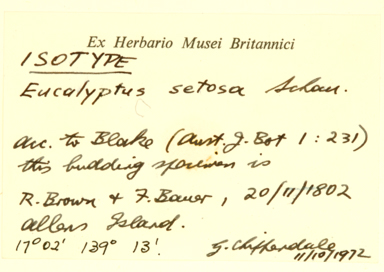 Ex Herbario Musei Britannici
ISOTYPE
Eucalyptus setosa Schau.
acc. to Blake (Aust. J. Bot 1 : 231)
this budding specimen is
R. Brown & F. Bauer, 20/11/1802
Allens Island.
17°02' 139° 13'.
G. Chippendale
11/10/1972